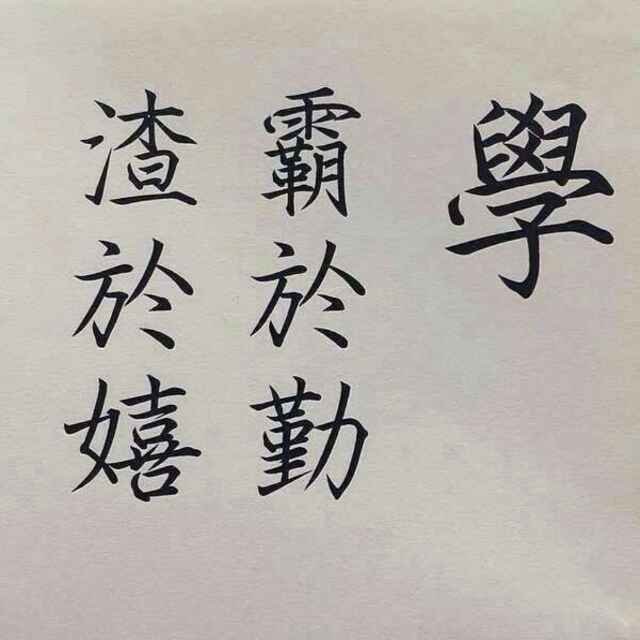 學
霸於勤
渣於嬉